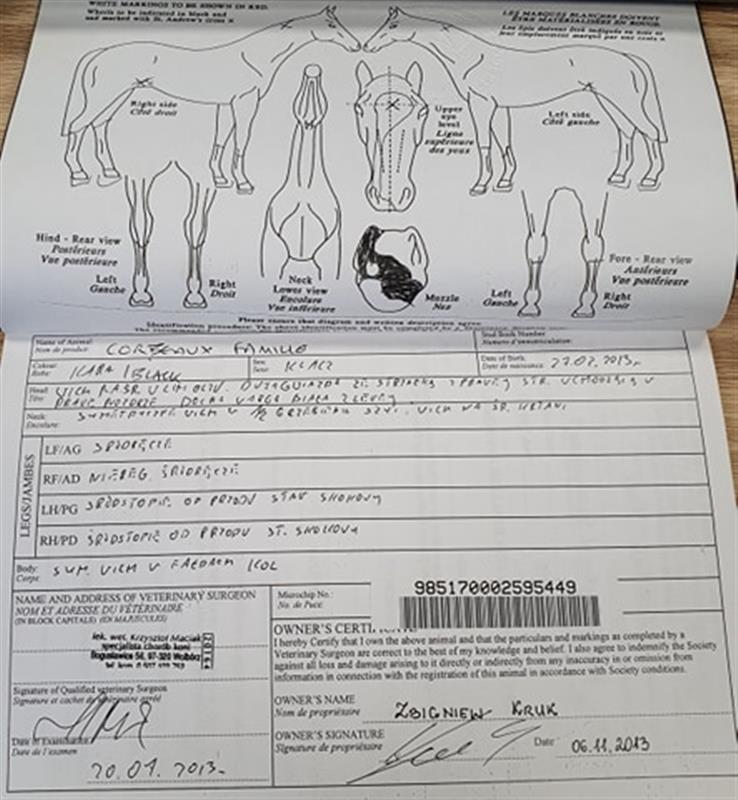 WHITE MARKINGS TO BE SHOWN IN RED.
Whorls to be indicated in black and
and marked with St. Andrew's cross x
LES MARQUES BLANCHES DOIVENT
ÊTRE MATÉRIALISÉES EN ROUGE.
Les épis doivent être indiqués en noir et
leur emplacement marqué par une croix x
Right side
Côté droit
Upper
eye
level
Ligne
supérieure
des yeux
Left side
Côté gauche
Hind - Rear view
Postérieurs
Vue postérieure
Left
Gauche
Right
Droit
Neck
Lower view
Encolure
Vue inférieure
Muzzle
Nez
Fore - Rear view
Antérieurs
Vue postérieure
Left
Gauche
Right
Droit
Please ensure that diagram and written description agree.
Name of Animal:
Nom de produit: CORBEAUX FAMILLE
Stud Book Number
Numéro d'immatriculation:
Colour:
Robe: KARA / BLACK
Sex:
Sexe: KLACZ
Date of Birth
Date de naissance: 27.02.2013r
Head:
Tête:
Neck:
Encolure:
LEGS/JAMBES
LF/AG ŚRÓDRĘCZE
RF/AD ŚRÓDRĘCZE
LH/PG ŚRÓDSTOPIE OD PRZODU STAW SKOKOWY
RH/PD ŚRÓDSTOPIE OD PRZODU ST. SKOKOWY
Body:
Corps:
NAME AND ADDRESS OF VETERINARY SURGEON
NOM ET ADRESSE DU VÉTÉRINAIRE
(IN BLOCK CAPITALS) (EN MAJUSCULES)
lek. wet. Krzysztof Maciak
specjalista chorób koni
Bogusławice 56, 97-320 Wolbórz
Signature of Qualified veterinary Surgeon
Signature et cachet du vétérinaire agréé
Date of Examination
Date de l'examen
Microchip No.:
No. de Puce:
985170002595449
OWNER'S CERTIFICATE
I hereby Certify that I own the above animal and that the particulars and markings as completed by a
Veterinary Surgeon are correct to the best of my knowledge and belief. I also agree to indemnify the Society
against all loss and damage arising to it directly or indirectly from any inaccuracy in or omission from
information in connection with the registration of this animal in accordance with Society conditions.
OWNER'S NAME
Nom de propriétaire ZBIGNIEW KRUK
OWNER'S SIGNATURE
Signature de propriétaire
Date 06.11.2013